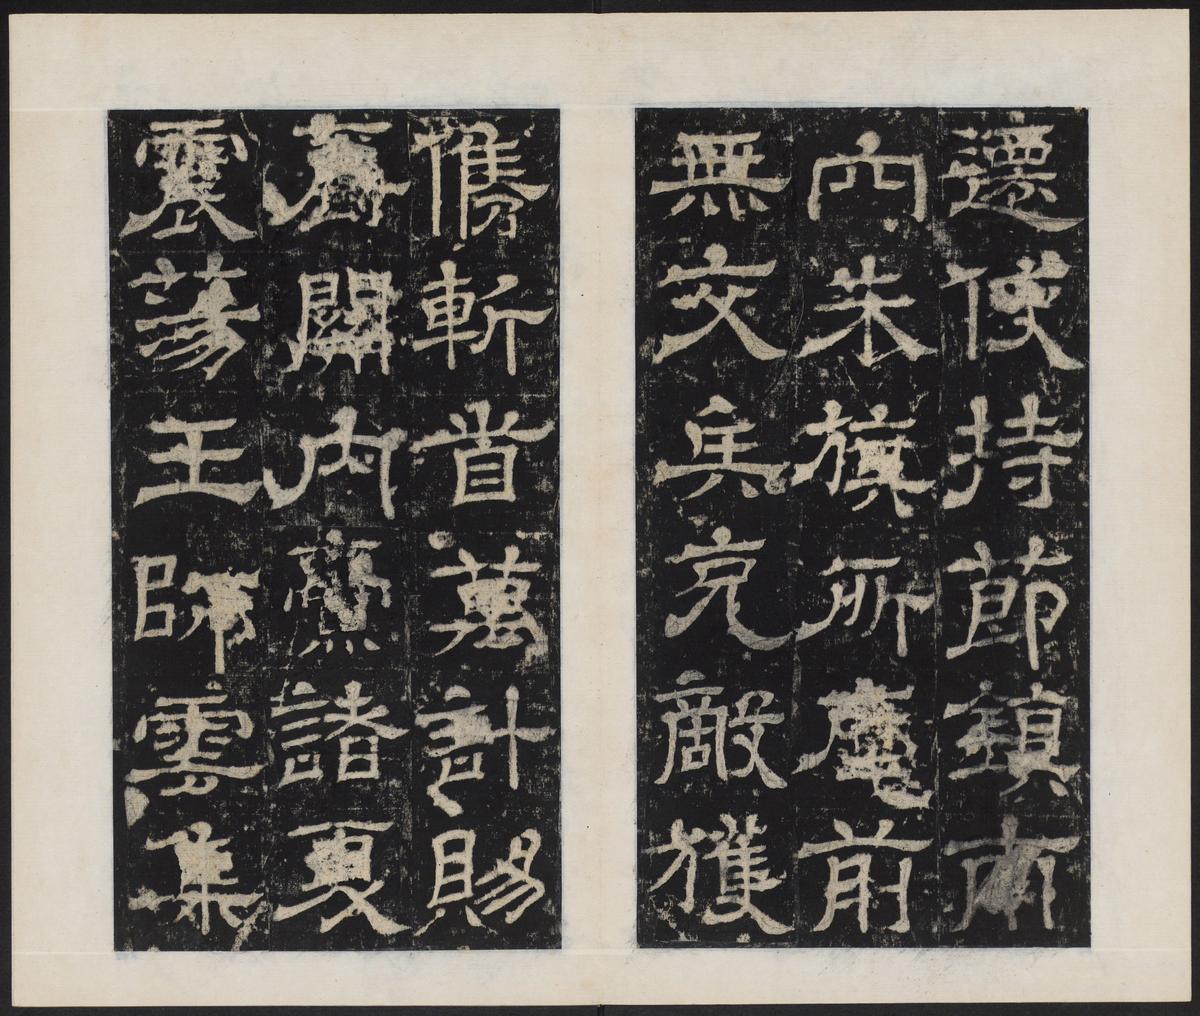 遷使持節鎮南
向朱旗所麾前
無交兵克敵獲
儁斬首萬計賜
爵關內諸夏
震蕩王師雲集